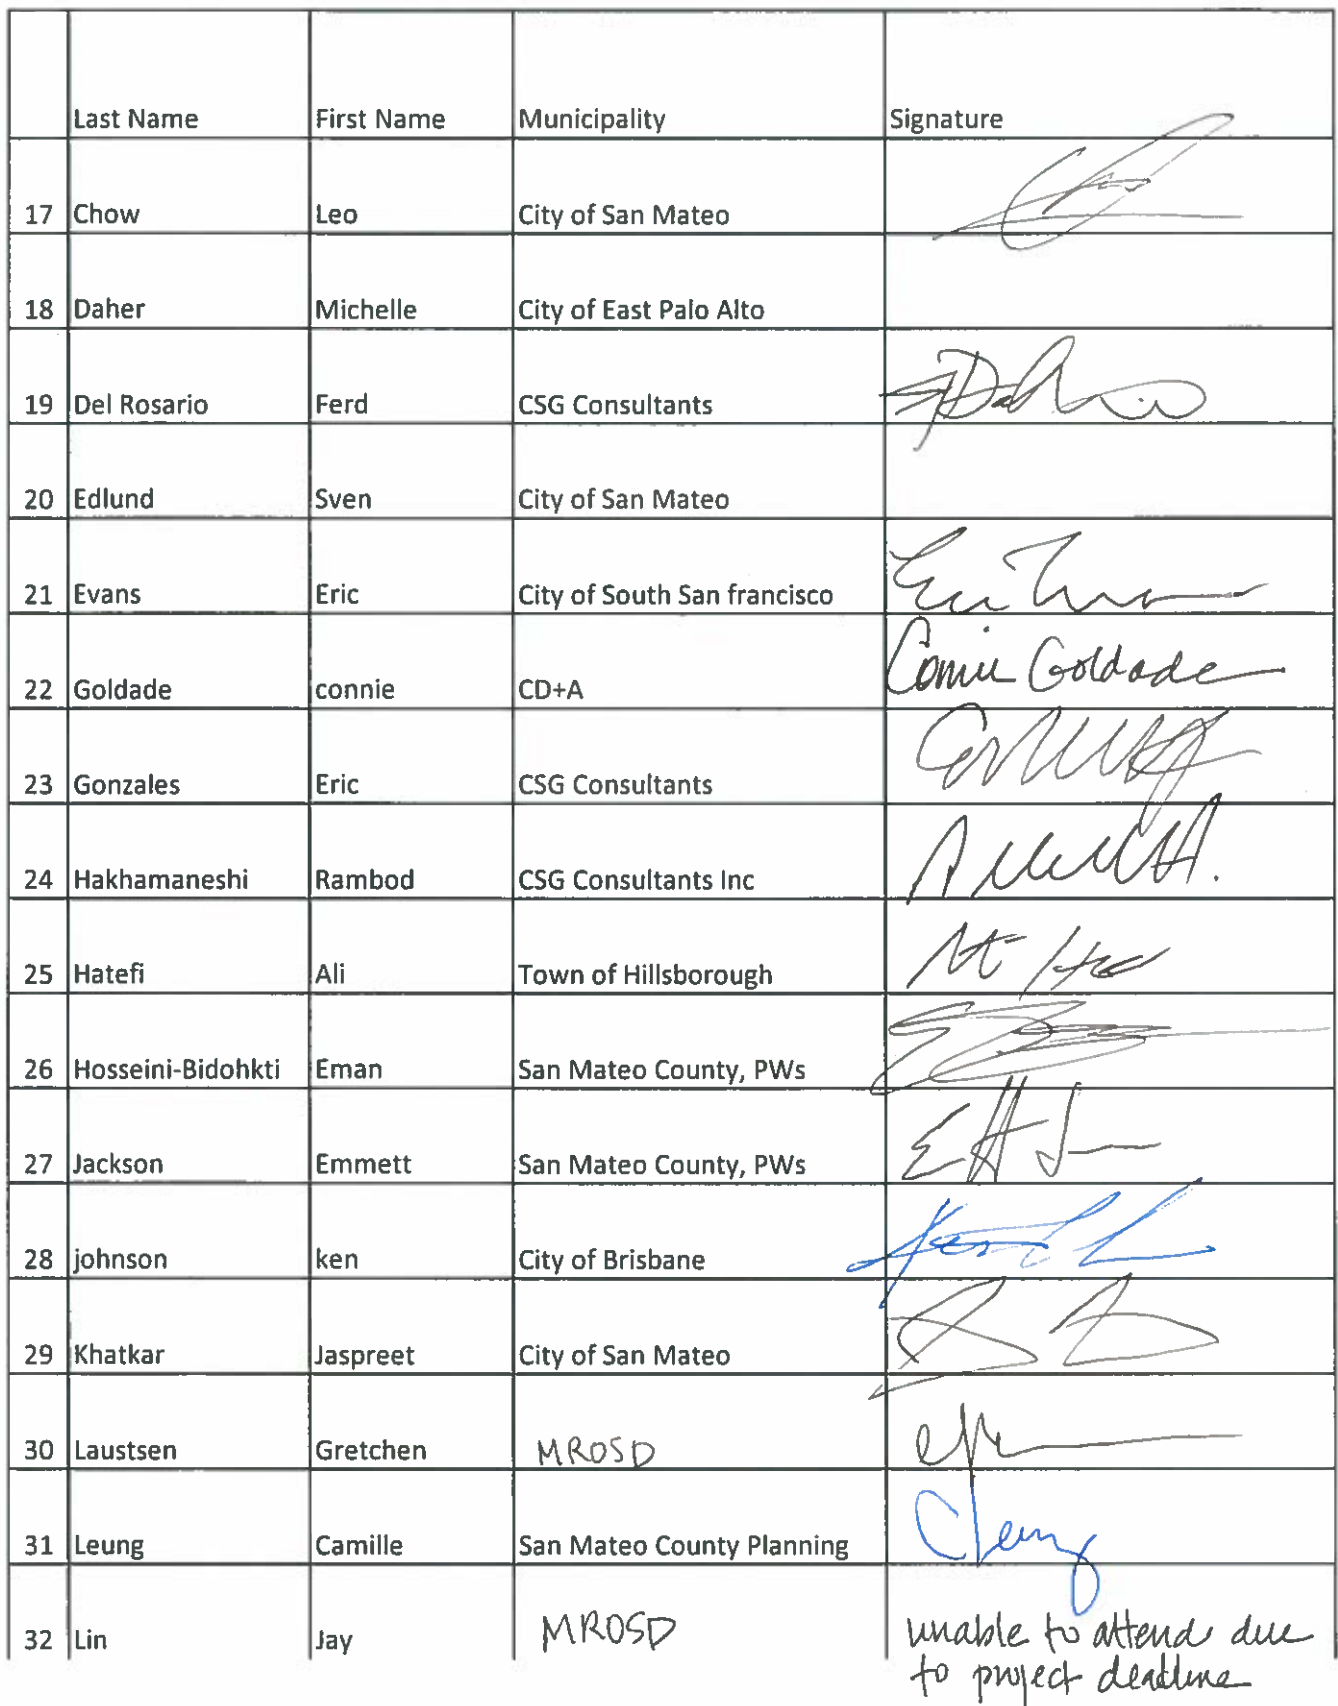 Last Name First Name Municipality Signature
17 Chow Leo City of San Mateo
18 Daher Michelle City of East Palo Alto
19 Del Rosario Ferd CSG Consultants
20 Edlund Sven City of San Mateo
21 Evans Eric City of South San francisco
22 Goldade connie CD+A Connie Goldade
23 Gonzales Eric CSG Consultants
24 Hakhamaneshi Rambod CSG Consultants Inc
25 Hatefi Ali Town of Hillsborough
26 Hosseini-Bidohkti Eman San Mateo County, PWs
27 Jackson Emmett San Mateo County, PWs
28 johnson ken City of Brisbane
29 Khatkar Jaspreet City of San Mateo
30 Laustsen Gretchen MROSD
31 Leung Camille San Mateo County Planning CLeung
32 Lin Jay MROSD unable to attend due
to project deadline